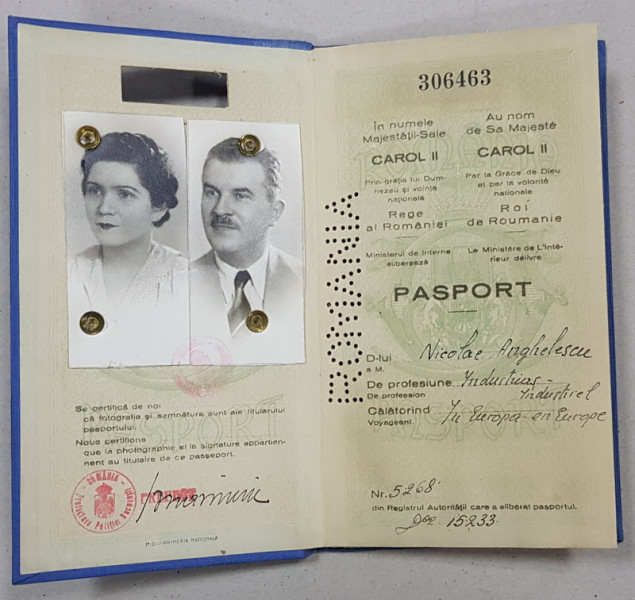 Se certifică de noi
că fotografia și semnătura sunt ale titularului
pașportului.
Nous certifions
que la photographie et la signature appartien-
nent au titulaire de ce passeport.
ROMÂNIA
306463
În numele
Majestății-Sale
CAROL II
Prin grația lui Dum-
nezeu și voința
națională
Rege
al României
Ministerul de Interne
eliberează
Au nom
de Sa Majesté
CAROL II
Par la Grâce de Dieu
et par la volonté
nationale
Roi
de Roumanie
Le Ministère de L'Inté-
rieur délivre
PASPORT
ROMANIA
D-lui Nicolae Anghelescu
a M.
De profesiune Industriaș -
De profession Industriel
Călătorind În Europa - en Europe
Voyageant
Nr. 5268
din Registrul Autorității care a eliberat pașportul.
15233